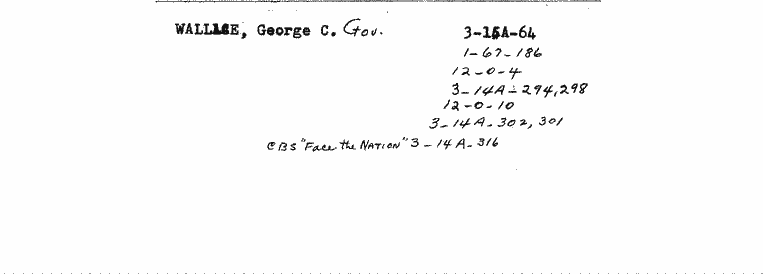 WALLACE, George C. Gov. 3-14A-64
1-67-186
12-0-4
3-14A-294,298
12-0-10
3-14A-302, 301
CBS "Face the NATION" 3-14A-316